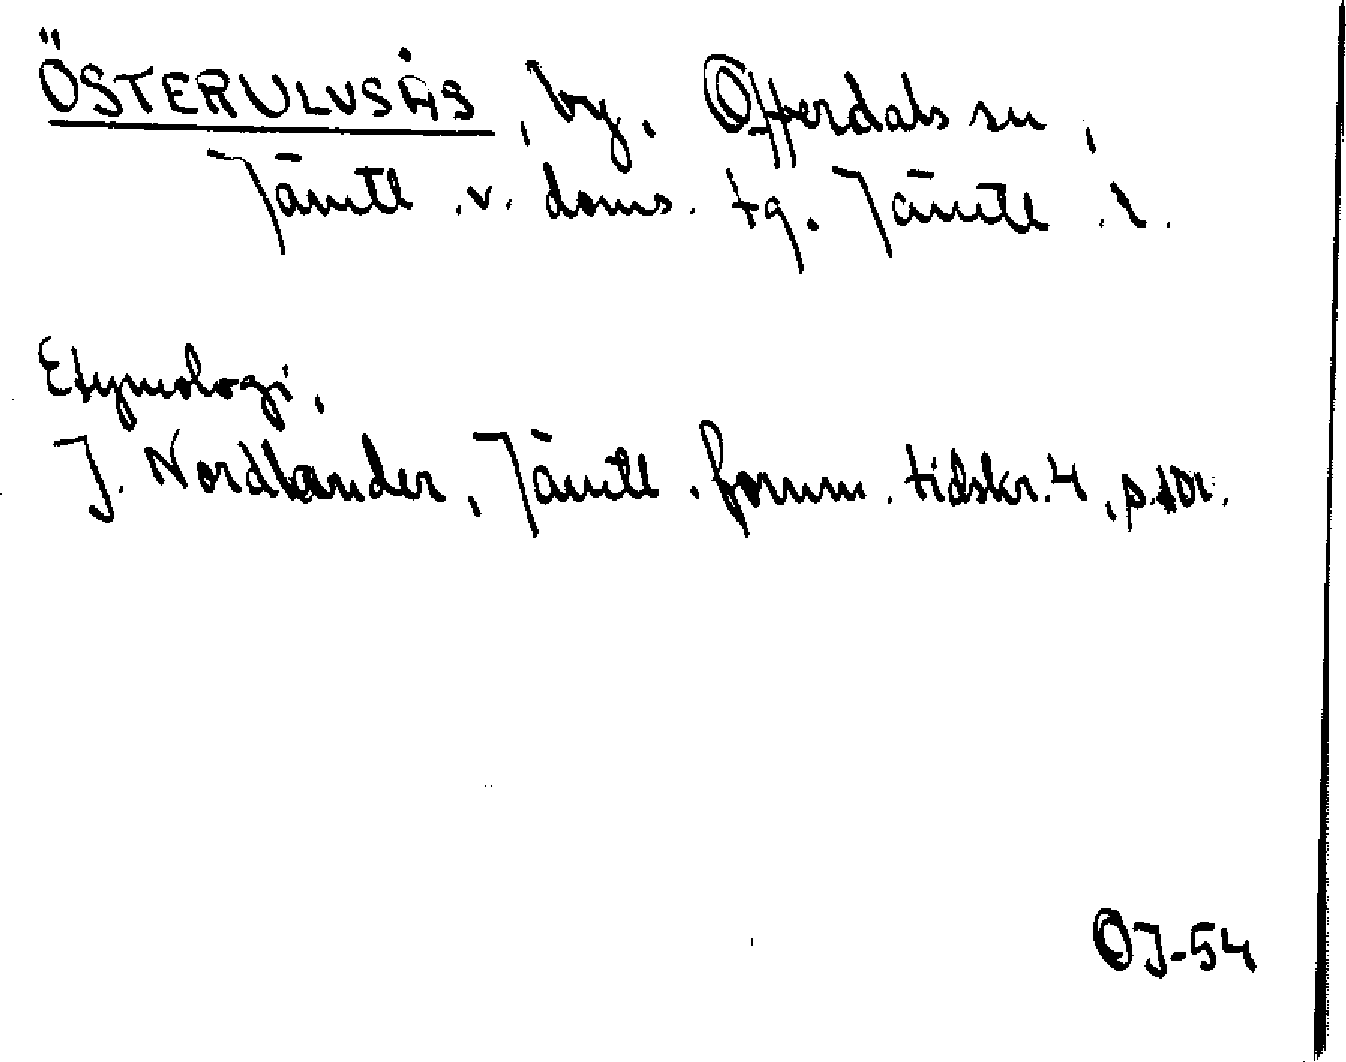 ÖSTERULVSÅS, by, Offerdals sn,
Jämtl. v. doms. tg. Jämtl. l.
Etymologi,
J. Nordlander, Jämtl. fornm. tidskr. 4,
OJ-54